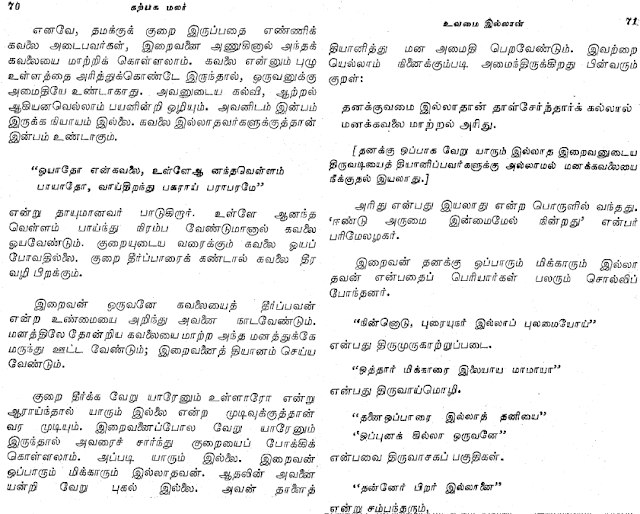 70 கற்பக மலர்
எனவே, தமக்குக் குறை இருப்பதை எண்ணிக்
கவலை அடைபவர்கள், இறைவனை அணுகினால் அந்தக்
கவலையை மாற்றிக் கொள்ளலாம். கவலை என்னும் புழு
உள்ளத்தை அரித்துக்கொண்டே இருந்தால், ஒருவனுக்கு
அமைதியே உண்டாகாது. அவனுடைய கல்வி, ஆற்றல்
ஆகியனவெல்லாம் பயனின்றி ஒழியும். அவனிடம் இன்பம்
இருக்க நியாயம் இல்லை. கவலை இல்லாதவர்களுக்குத்தான்
இன்பம் உண்டாகும்.
“ஓயாதோ என்கவலை, உள்ளேஆ னந்தவெள்ளம்
பாயாதோ, வாய்திறந்து பகராய் பராபரமே”
என்று தாயுமானவர் பாடுகிறார். உள்ளே ஆனந்த
வெள்ளம் பாய்ந்து நிரம்ப வேண்டுமானால் கவலை
ஓயவேண்டும். குறையுடைய வரைக்கும் கவலை ஓயப்
போவதில்லை. குறை தீர்ப்பாரைக் கண்டால் கவலை தீர
வழி பிறக்கும்.
இறைவன் ஒருவனே கவலையைத் தீர்ப்பவன்
என்ற உண்மையை அறிந்து அவனை நாடவேண்டும்.
மனத்திலே தோன்றிய கவலையை மாற்ற அந்த மனத்துக்கே
மருந்து ஊட்ட வேண்டும்; இறைவனைத் தியானம் செய்ய
வேண்டும்.
குறை தீர்க்க வேறு யாரேனும் உள்ளாரோ என்று
ஆராய்ந்தால் யாரும் இல்லை என்ற முடிவுக்குத்தான்
வர முடியும். இறைவனைப்போல வேறு யாரேனும்
இருந்தால் அவரைச் சார்ந்து குறையைப் போக்கிக்
கொள்ளலாம். அப்படி யாரும் இல்லை. இறைவன்
ஒப்பாரும் மிக்காரும் இல்லாதவன். ஆதலின் அவனை
யன்றி வேறு புகல் இல்லை. அவன் தாளைத்
உவமை இல்லான் 71
தியானித்து மன அமைதி பெறவேண்டும். இவற்றை
யெல்லாம் நினைக்கும்படி அமைந்திருக்கிறது பின்வரும்
குறள்:
தனக்குவமை இல்லாதான் தாள்சேர்ந்தார்க் கல்லால்
மனக்கவலை மாற்றல் அரிது.
[தனக்கு ஒப்பாக வேறு யாரும் இல்லாத இறைவனுடைய
திருவடியைத் தியானிப்பவர்களுக்கு அல்லாமல் மனக்கவலையை
நீக்குதல் இயலாது.]
அரிது என்பது இயலாது என்ற பொருளில் வந்தது.
‘ஈண்டு அருமை இன்மைமேல் நின்றது’ என்பர்
பரிமேலழகர்.
இறைவன் தனக்கு ஒப்பாரும் மிக்காரும் இல்லா
தவன் என்பதைப் பெரியார்கள் பலரும் சொல்லிப்
போந்தனர்.
“நின்னொடு, புரையுநர் இல்லாப் புலமையோய்”
என்பது திருமுருகாற்றுப்படை.
“ஒத்தார் மிக்காரை இலையாய மாமாயா”
என்பது திருவாய்மொழி.
“தனைஒப்பாரை இல்லாத் தனியை”
“ஒப்புனக் கில்லா ஒருவனே”
என்பவை திருவாசகப் பகுதிகள்.
“தன்னேர் பிறர் இல்லானை”
என்றார் சம்பந்தரும்,